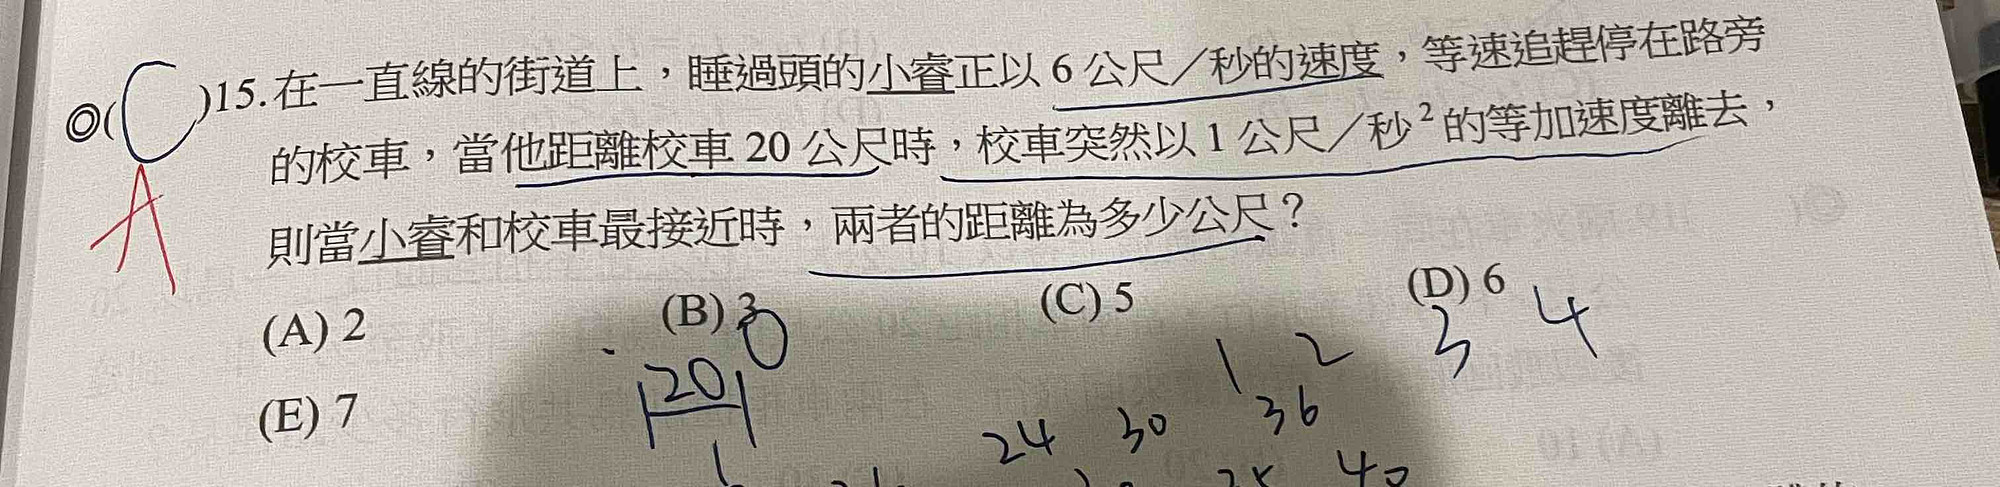 ◎(C)15.在一直線的街道上，睡過頭的小睿正以 6 公尺／秒的速度，等速追趕停在路旁
的校車，當他距離校車 20 公尺時，校車突然以 1 公尺／秒²的等加速度離去，
A
則當小睿和校車最接近時，兩者的距離為多少公尺？
(A) 2 (B) 3 (C) 5 (D) 6
0 1 2 3 4
(E) 7 20
24 30 36
40